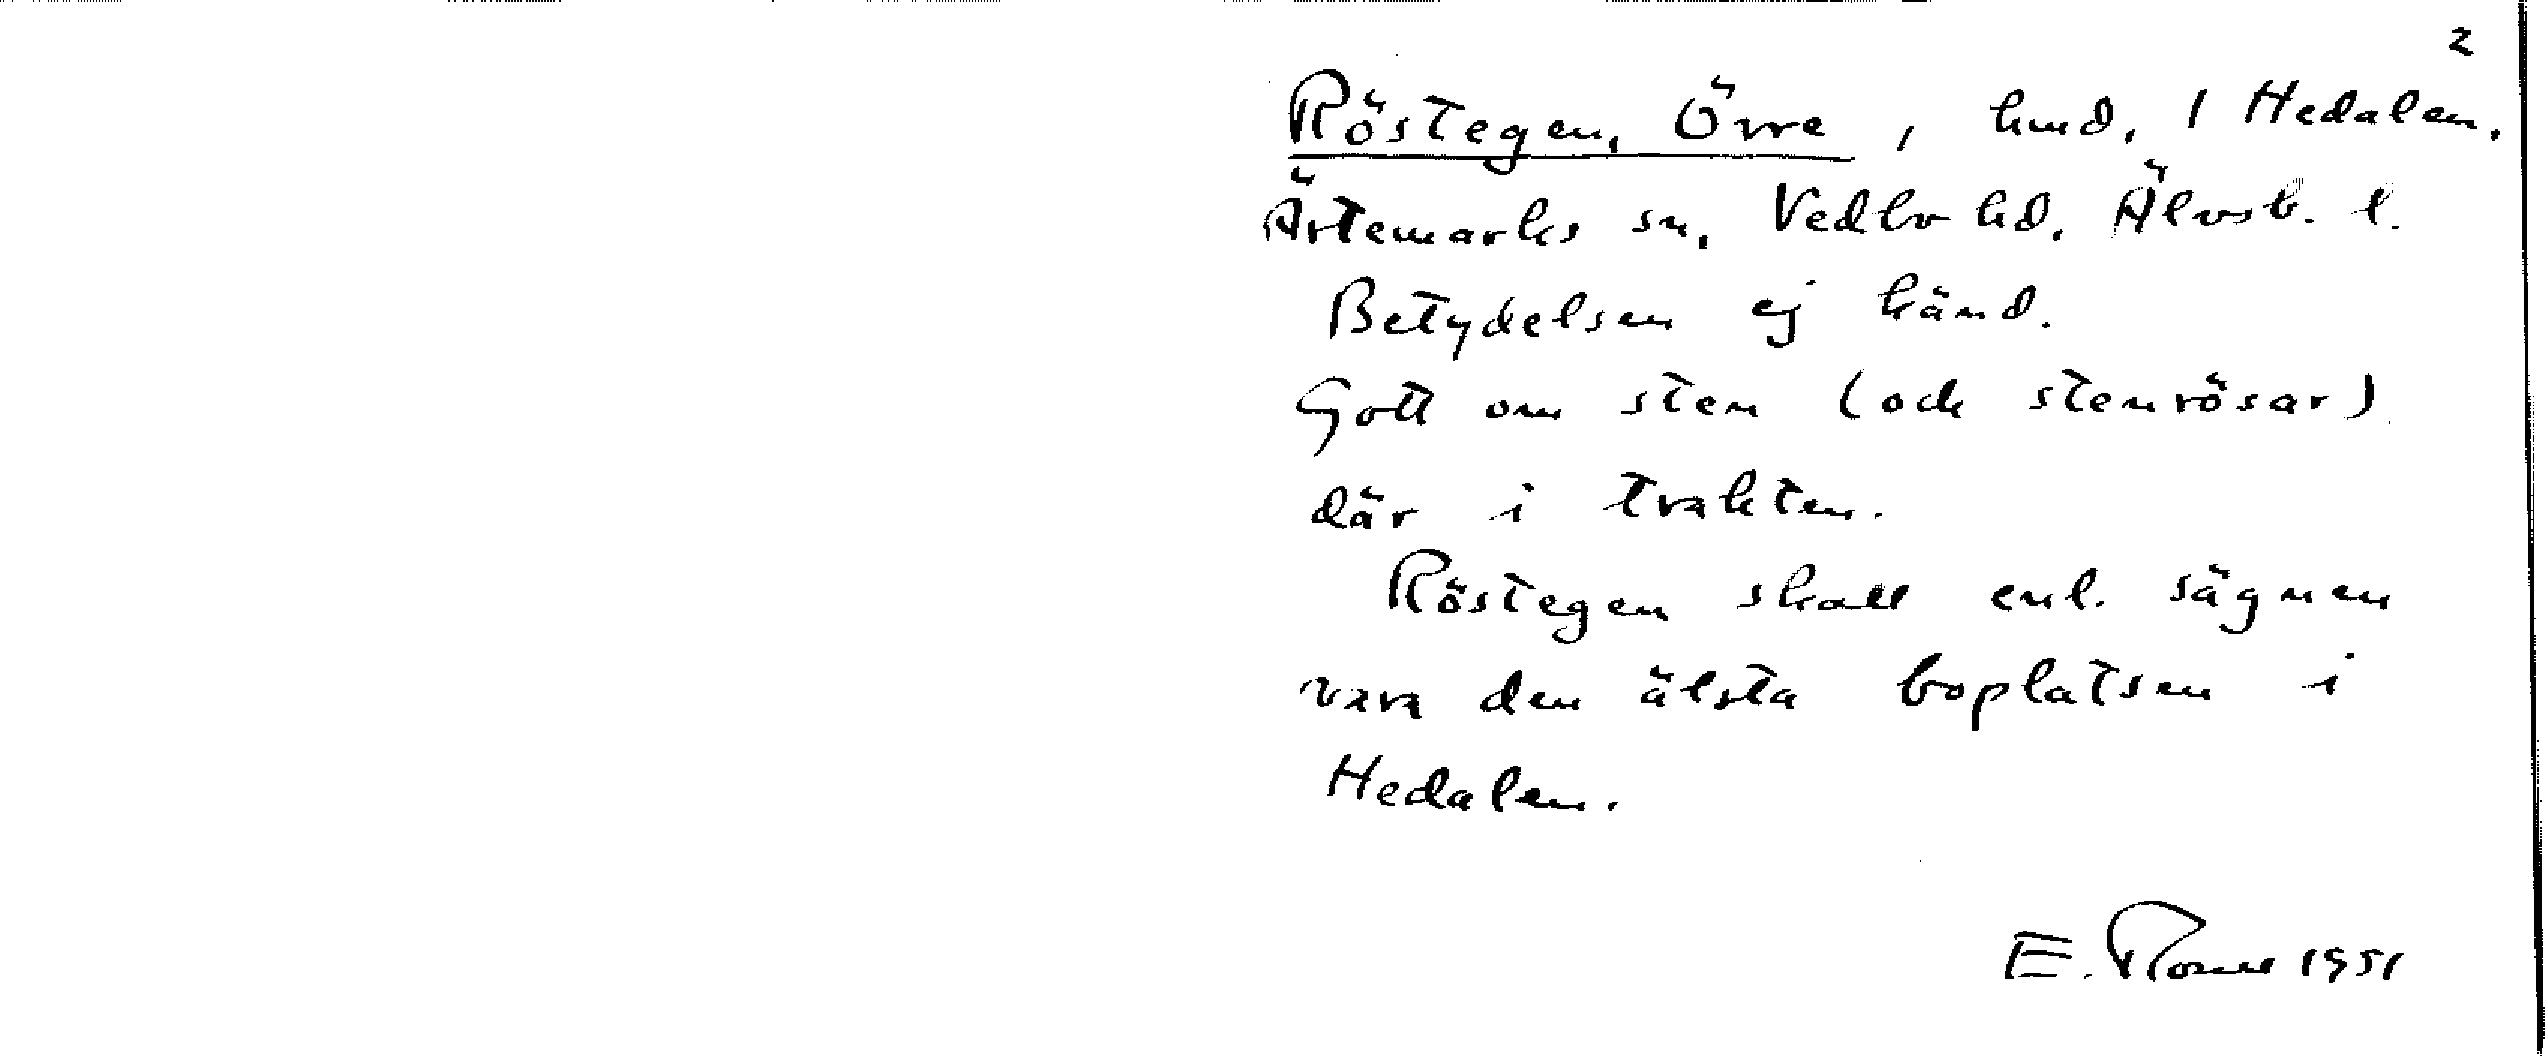 2
Röstegen, Övre, hmd, 1 Hedalen.
Ärtemarks sn, Vedbo hd. Älvsb. l.
Betydelsen ej känd.
Gott om sten (och stenrösar)
där i trakten.
Röstegen skall enl. sägnen
vara den älsta boplatsen i
Hedalen.
E. 1951